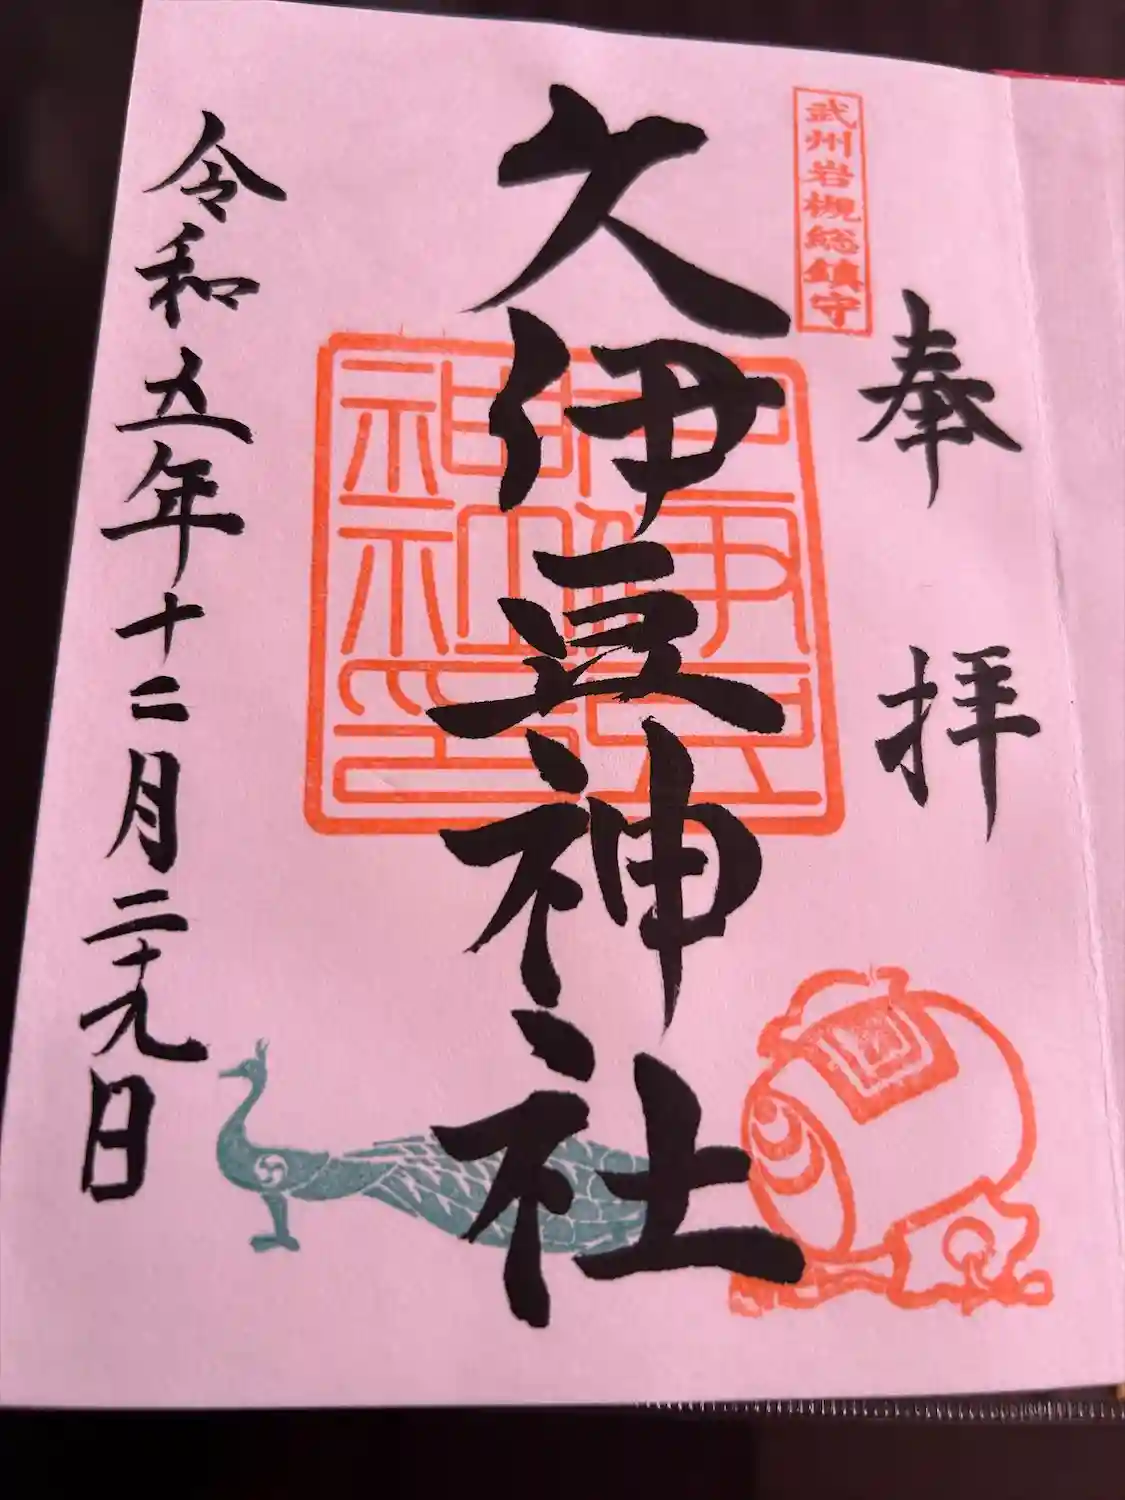 奉拝
武州岩槻総鎮守
久伊豆神社
令和五年十二月二十九日